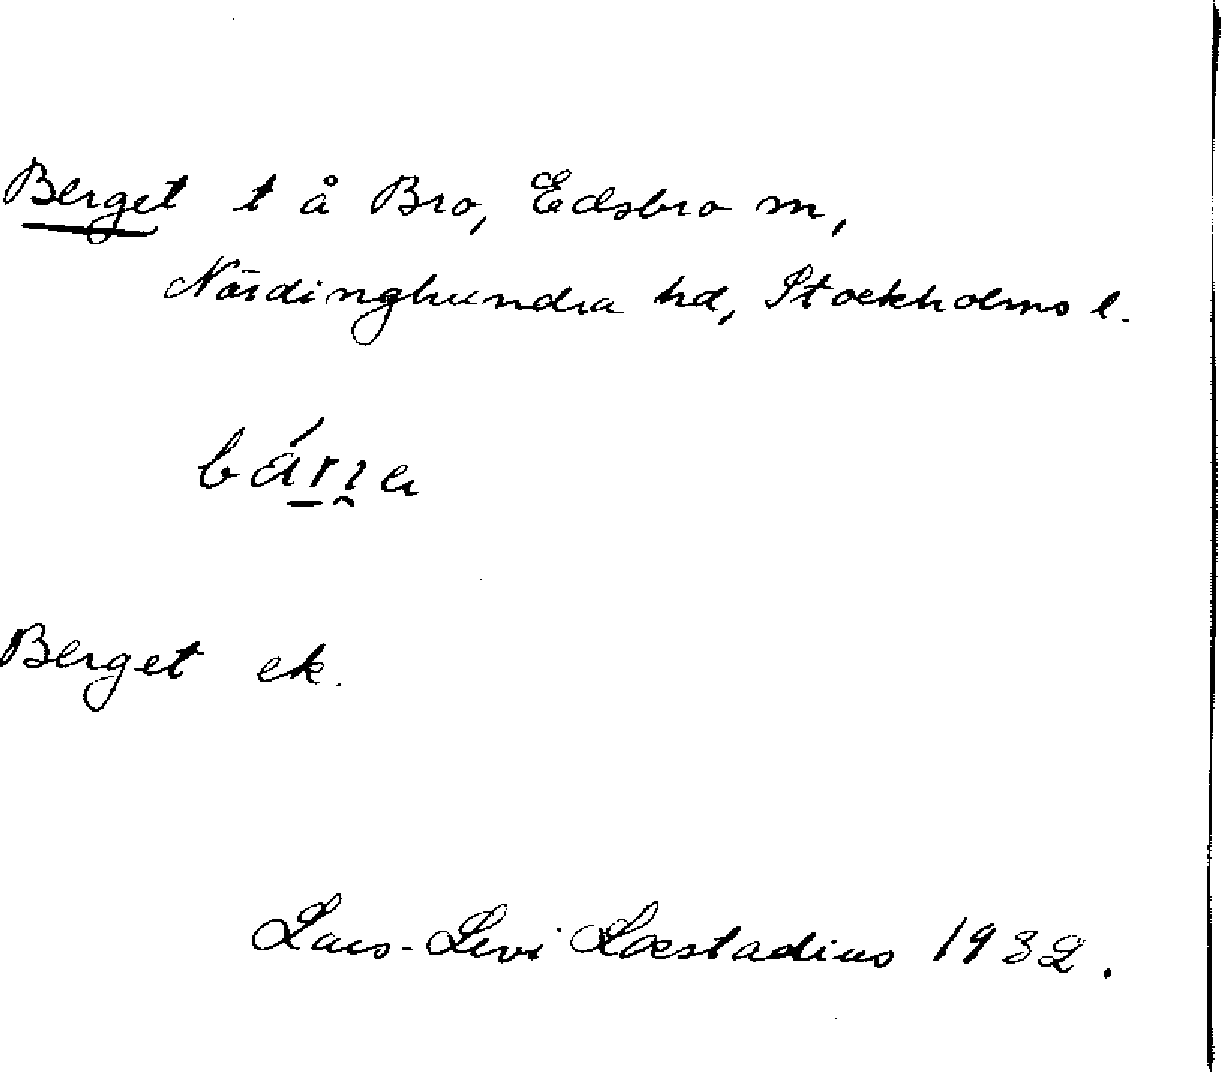 Berget t å Bro, Edsbro sn,
Närdinghundra hd, Stockholms l.
Berget ek.
Lars-Levi Læstadius 1932.